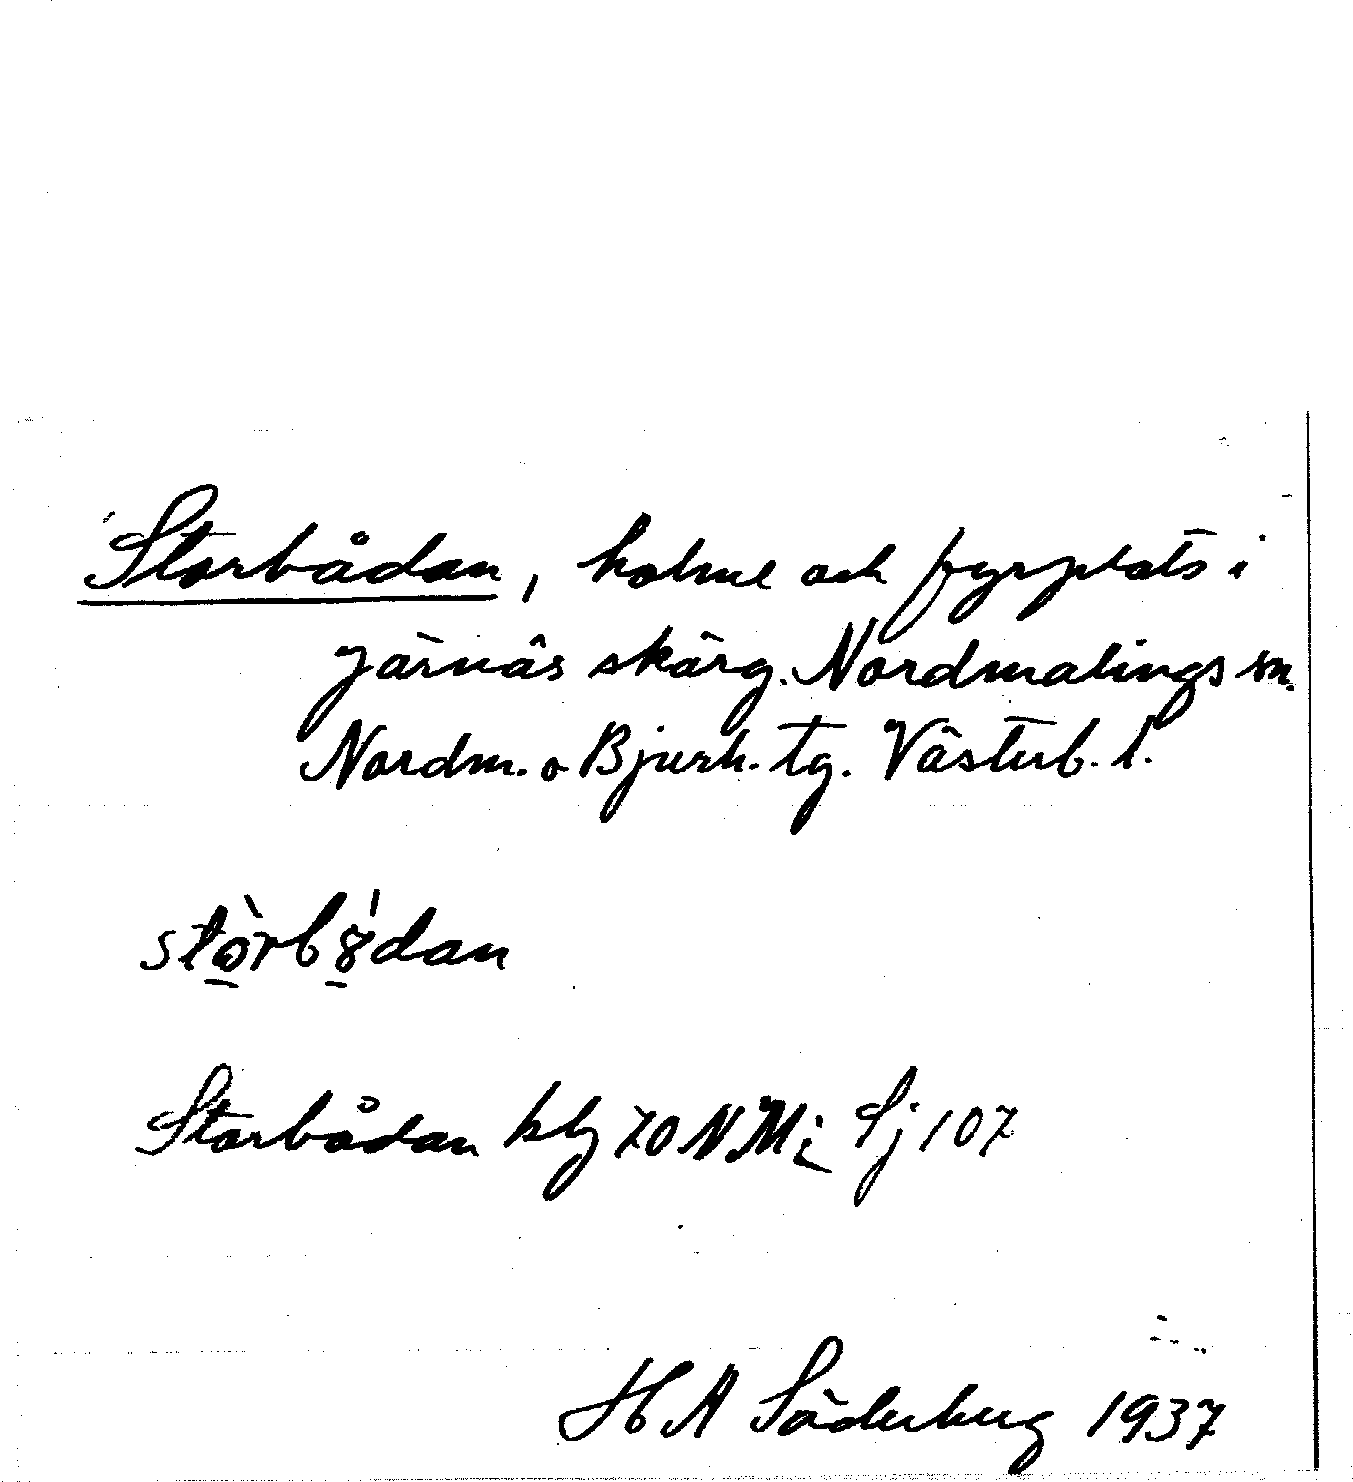 Storbådan, holme och fyrplats i
Järnäs skärg. Nordmalings sn.
Nordm. o Bjurh. tg. Västerb. l.
Storbådan blz 70 NMi Sj 107
H A Söderberg 1937